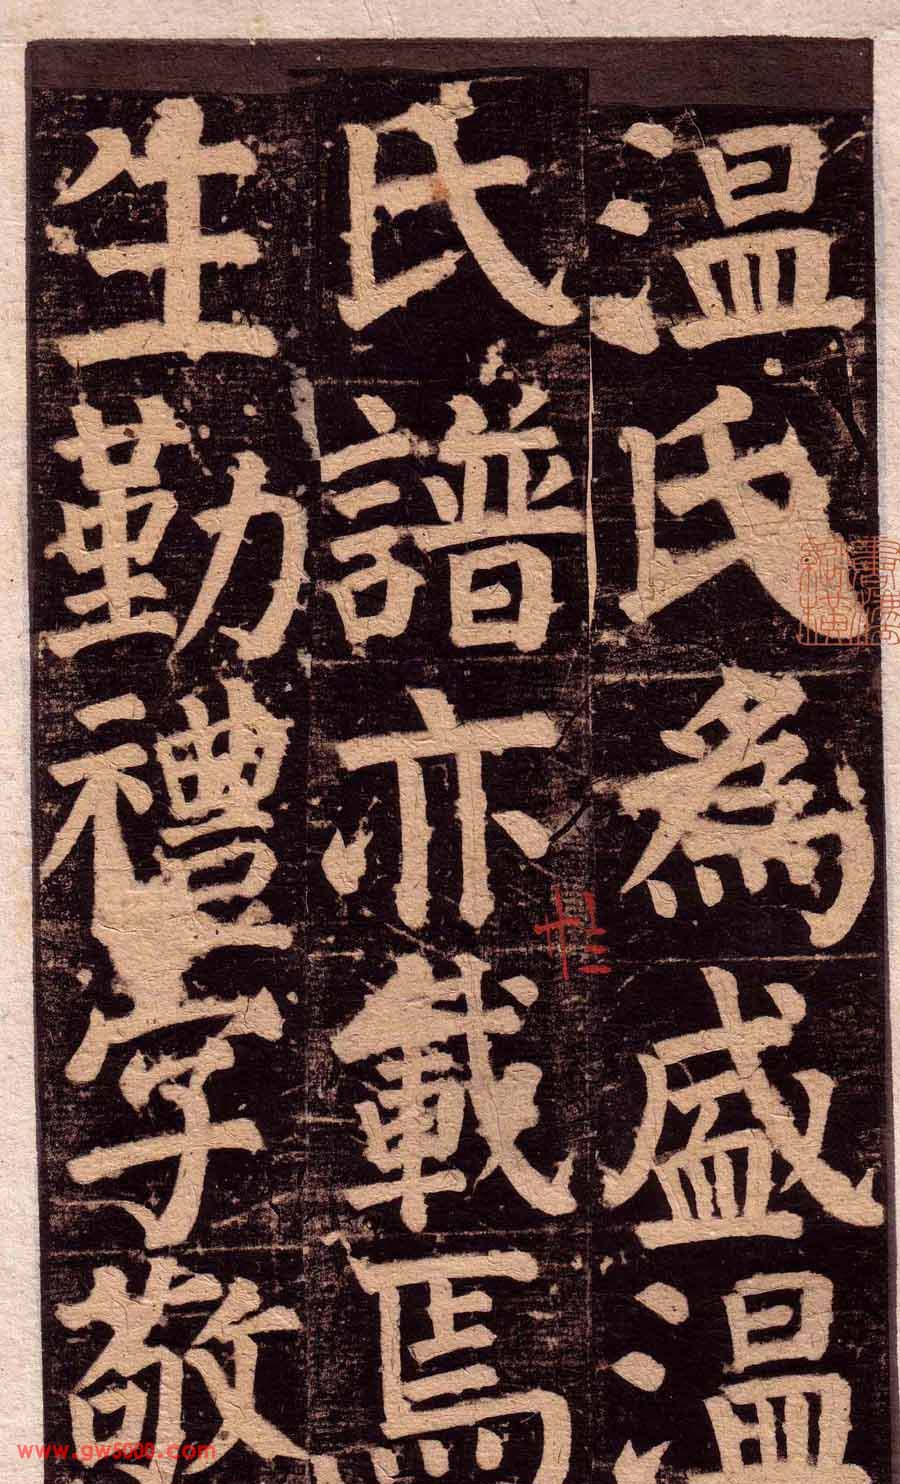 温氏為盛温
氏譜亦載焉
生勤禮字敬
www.gw5000.com